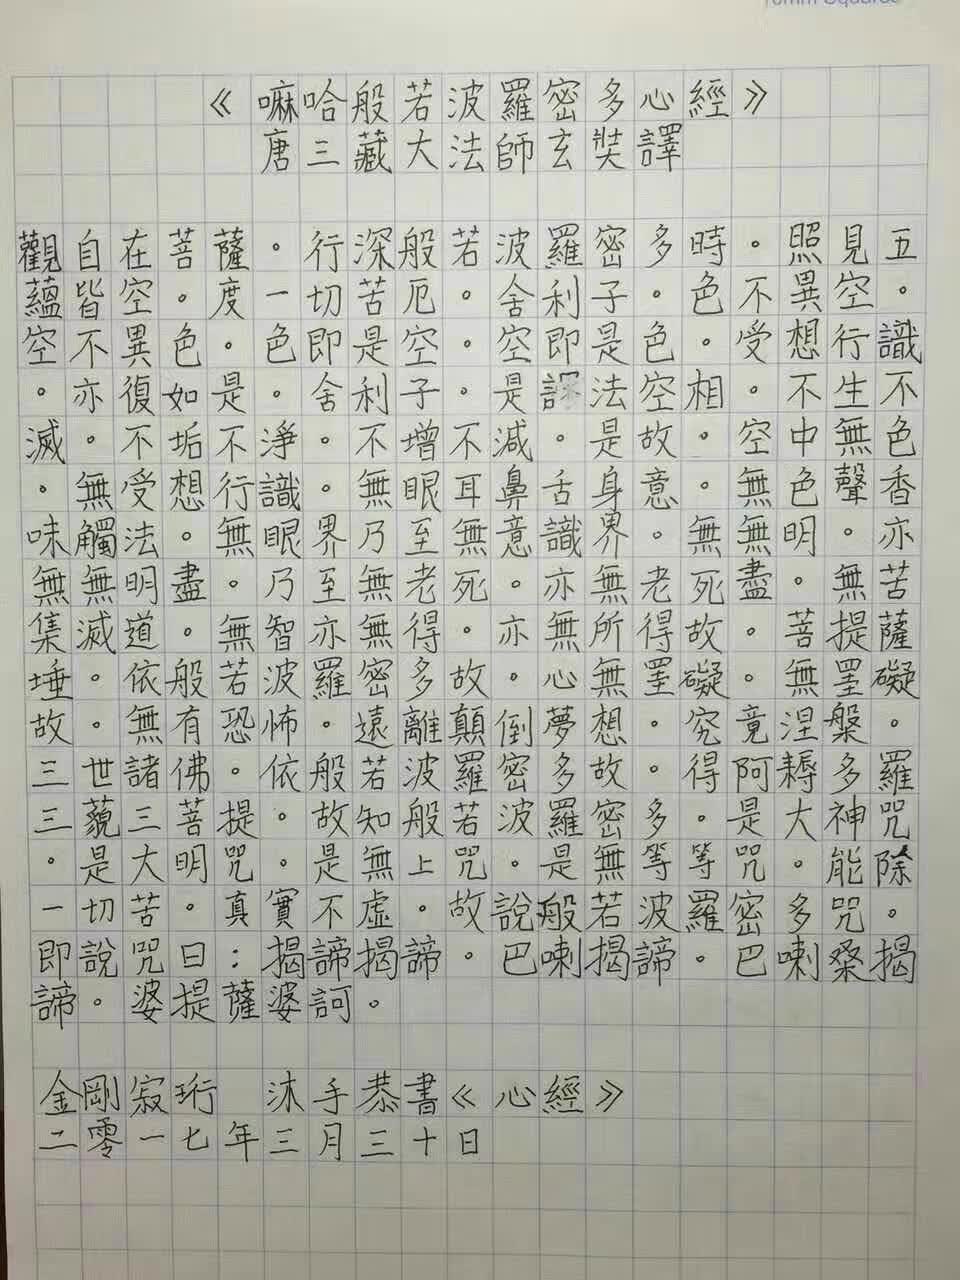 《嘛哈般若波羅密多心經》
唐三藏大法師玄奘譯
觀自在菩薩。行深般若波羅密多時。照見五
蘊皆空。度一切苦厄。舍利子。色不異空。
空不異色。色即是空。空即是色。受想行識
。亦復如是。舍利子。是法空相。不生不
滅。不垢不淨。不增不減。是故。空中無色
。無受想行識。無眼耳鼻舌身意。無色聲香
味觸法。無眼界乃至無意識界。無無明。亦
無無明盡。乃至無老死。亦無老死盡。無苦
集滅道。無智亦無得。亦無所得故。菩提薩
埵。依般若波羅密多故。心無罣礙。無罣礙
故。無有恐怖。遠離顛倒夢想。究竟涅槃。
三世諸佛。依般若波羅密多故。得阿耨多羅
三藐三菩提。故知般若波羅密多。是大神咒
。是大明咒。是無上咒。是無等等咒。能除
一切苦。真實不虛。故說般若波羅密多咒。
即說咒曰：揭諦揭諦。巴喇揭諦。巴喇桑揭
諦。婆提薩婆訶。
金剛寂珩 沐手恭書《心經》
二零一七年三月三十日